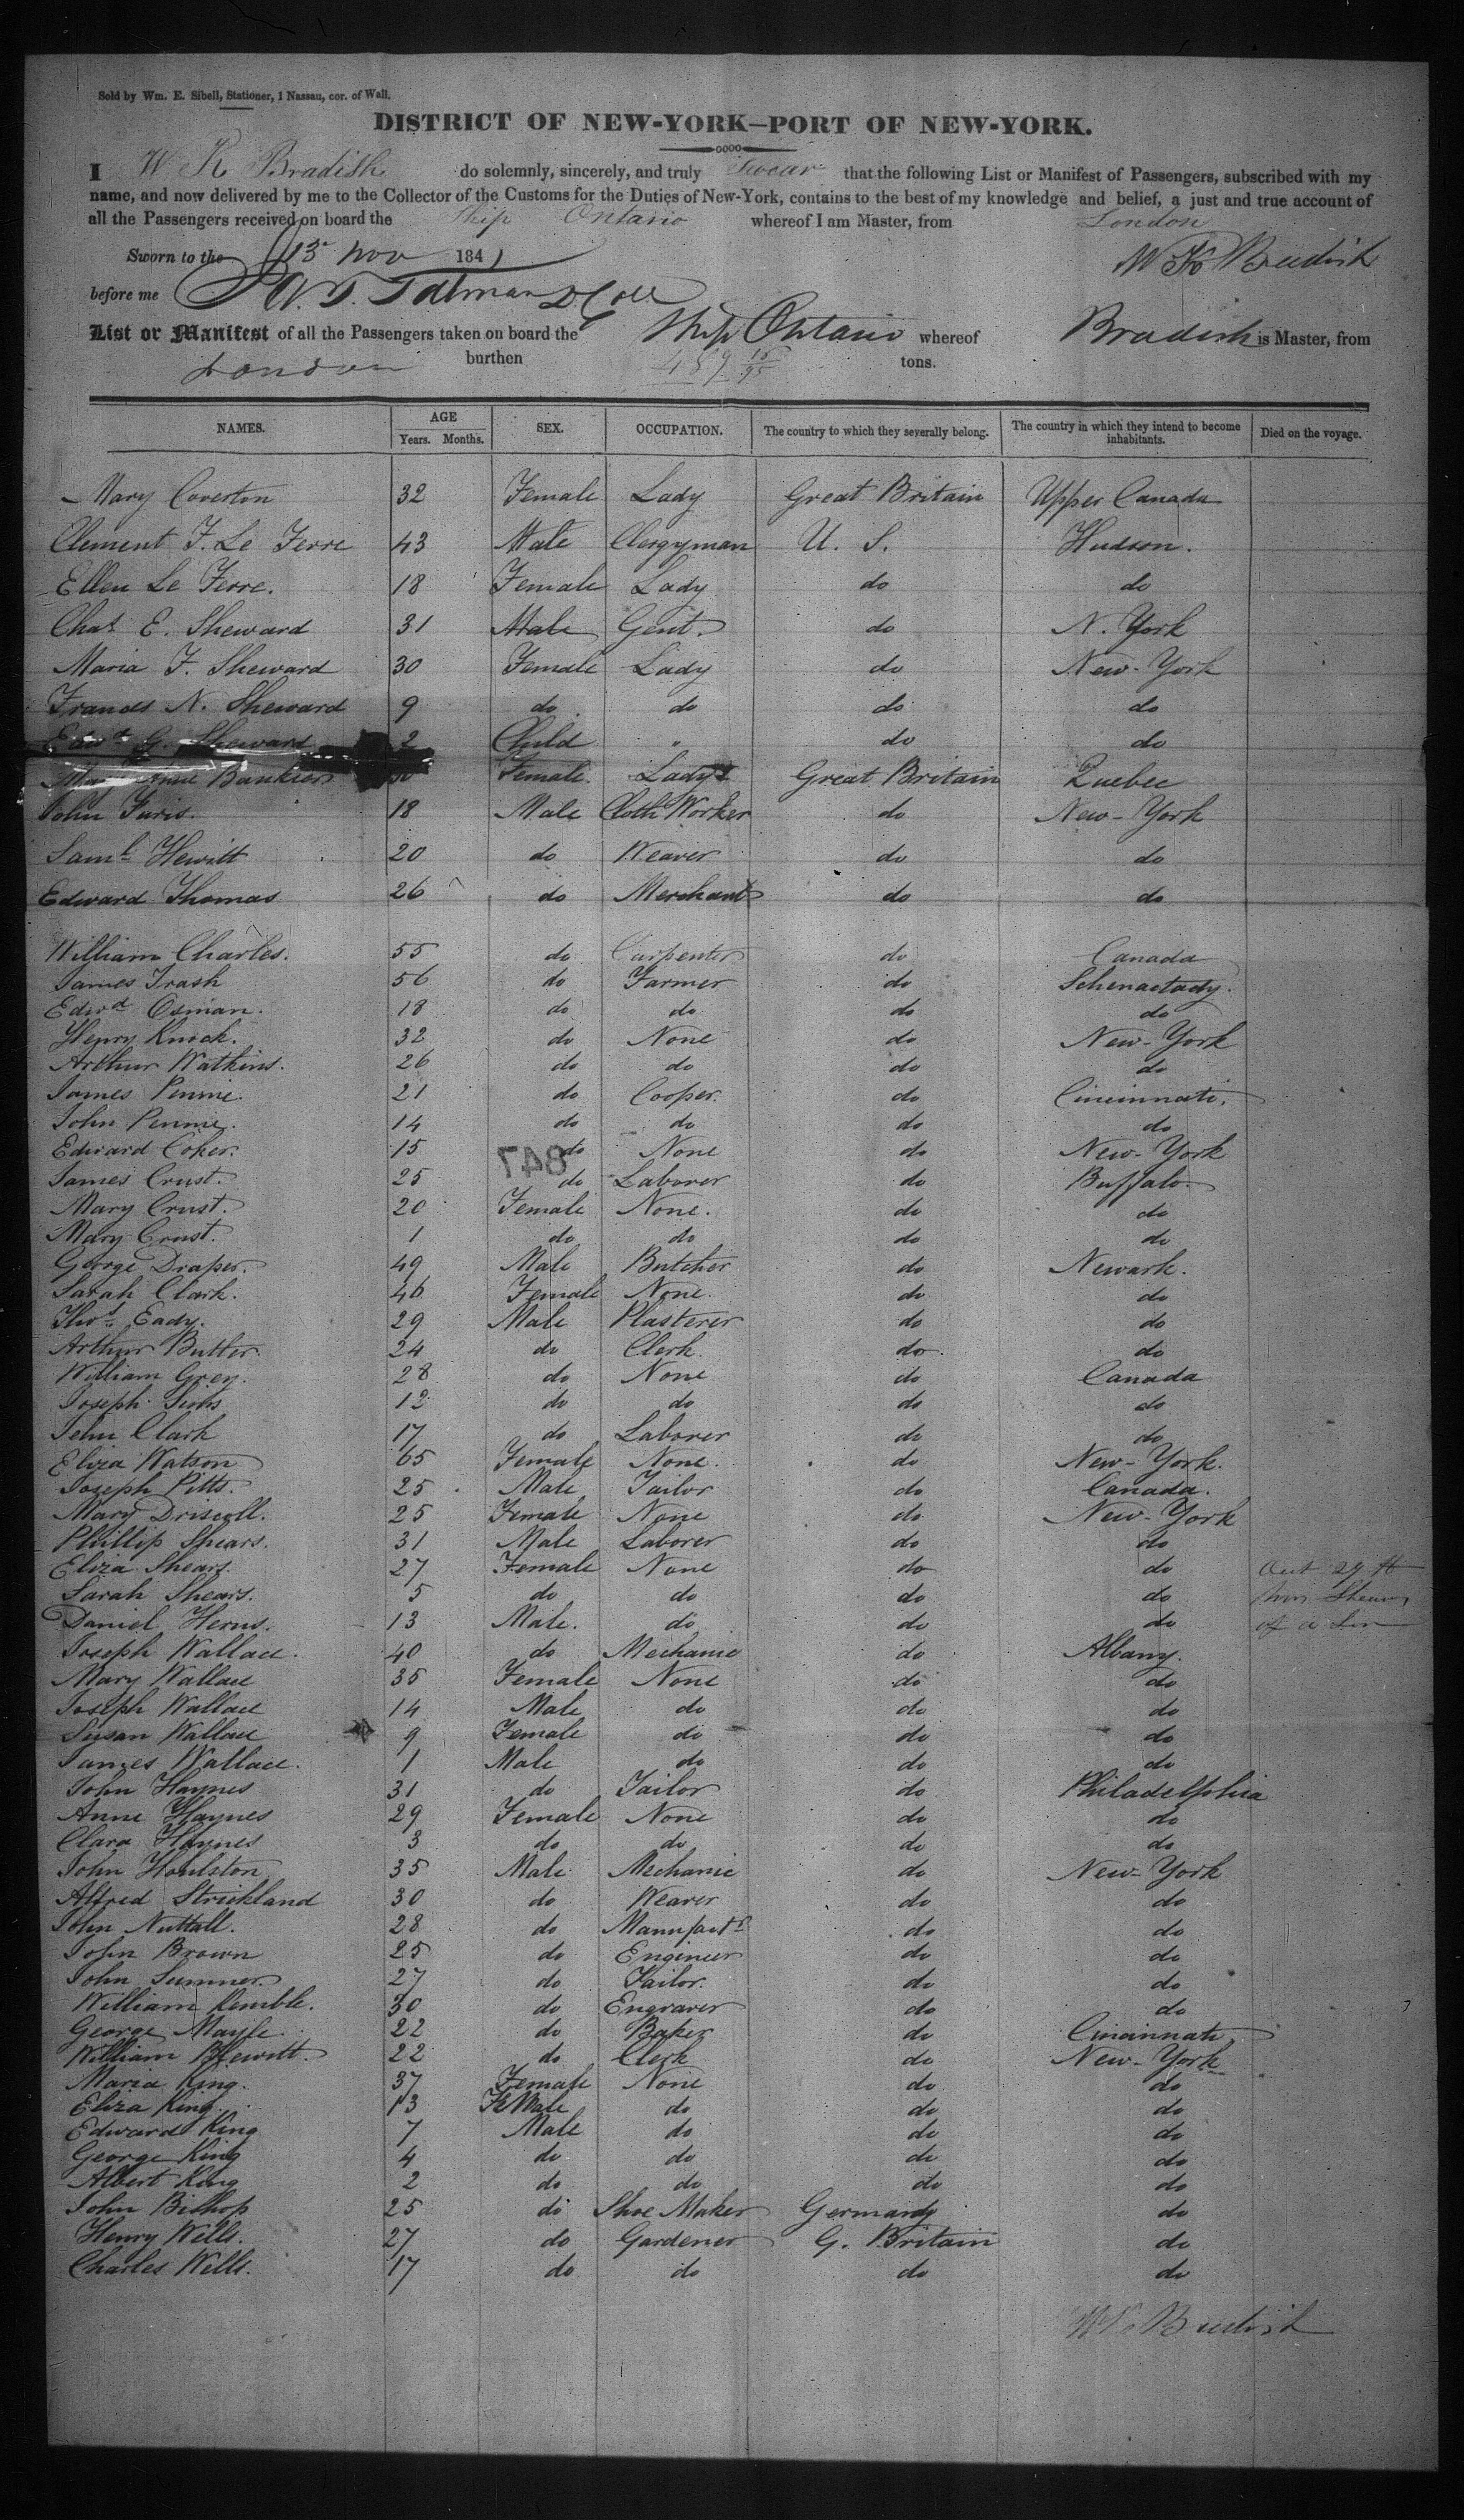 Sold by Wm. E. Sibell, Stationer, 1 Nassau, cor. of Wall.
DISTRICT OF NEW-YORK—PORT OF NEW-YORK.
I W K Bradish do solemnly, sincerely, and truly swear that the following List or Manifest of Passengers, subscribed with my
name, and now delivered by me to the Collector of the Customs for the Duties of New-York, contains to the best of my knowledge and belief, a just and true account of
all the Passengers received on board the Ship Ontario whereof I am Master, from London
Sworn to the 13 Nov 1841 W K Bradish
before me
List or Manifest of all the Passengers taken on board the Ship Ontario whereof Bradish is Master, from
London burthen 489 15/95 tons.
NAMES. AGE SEX. OCCUPATION. The country to which they severally belong. The country in which they intend to become inhabitants. Died on the voyage.
Years. Months.
Mary Coverton 32 Female Lady Great Britain Upper Canada
Clement F. Le Ferre 43 Male Clergyman U. S. Hudson.
Ellen Le Ferre. 18 Female Lady do do
Chas E. Sheward 31 Male Gent. do N. York
Maria F. Sheward 30 Female Lady do New-York
Frances N. Sheward 9 do do do do
Edwd G. Sheward 2 Child " do do
Anne Female. Lady Great Britain Quebec
John Faris. 18 Male Cloth Worker do New-York
Saml Hewitt 20 do Weaver do do
Edward Thomas 26 do Merchant do do
William Charles. 55 do Carpenter do Canada
James Trash 56 do Farmer do Schenactady.
Edwd Osman. 18 do do do do
Henry Knock. 32 do None do New-York
Arthur Watkins. 26 do do do do
James Pennie. 21 do Cooper. do Cincinnati.
John Pennie. 14 do do do do
Edward Coker. 15 do None do New-York
847
James Crust. 25 do Laborer do Buffalo.
Mary Crust. 20 Female None. do do
Mary Crust. 1 do do do do
George Draper. 49 Male Butcher do Newark.
Sarah Clark. 46 Female None. do do
Thos. Eady. 29 Male Plasterer do do
Arthur Butter. 24 do Clerk. do do
William Grey. 28 do None do Canada
Joseph Sims 12 do do do do
John Clark 17 do Laborer do do
Eliza Watson 65 Female None. do New-York.
Joseph Pitts. 25 Male Tailor do Canada.
Mary Driscoll. 25 Female None do New-York
Phillip Shears. 31 Male Laborer do do
Eliza Shears. 27 Female None do do Oct 29th
Sarah Shears. 5 do do do do Mrs Shears
Daniel Herns. 13 Male. do do do of a Son
Joseph Wallace. 40 do Mechanic do Albany.
Mary Wallace 35 Female None do do
Joseph Wallace 14 Male do do do
Susan Wallace 9 Female do do do
James Wallace. 1 Male do do do
John Haynes 31 do Tailor do Philadelphia
Anne Haynes 29 Female None do do
Clara Haynes 3 do do do do
John Houlston 35 Male Mechanic do New-York
Alfred Strickland 30 do Weaver do do
John Nuttall. 28 do Manufactr do do
John Brown 25 do Engineer do do
John Sumner. 27 do Tailor. do do
William Kemble. 30 do Engraver do do
George Mayle. 22 do Baker do Cincinnati,
William Blewitt. 22 do Clerk do New-York
Maria King. 37 Female None do do
Eliza King. 13 FeMale do do do
Edward King 7 Male do do do
George King 4 do do do do
Albert King 2 do do do do
John Bishop 25 do Shoe Maker Germany do
Henry Wells. 27 do Gardener G. Britain do
Charles Wells. 17 do do do do
W K Bradish